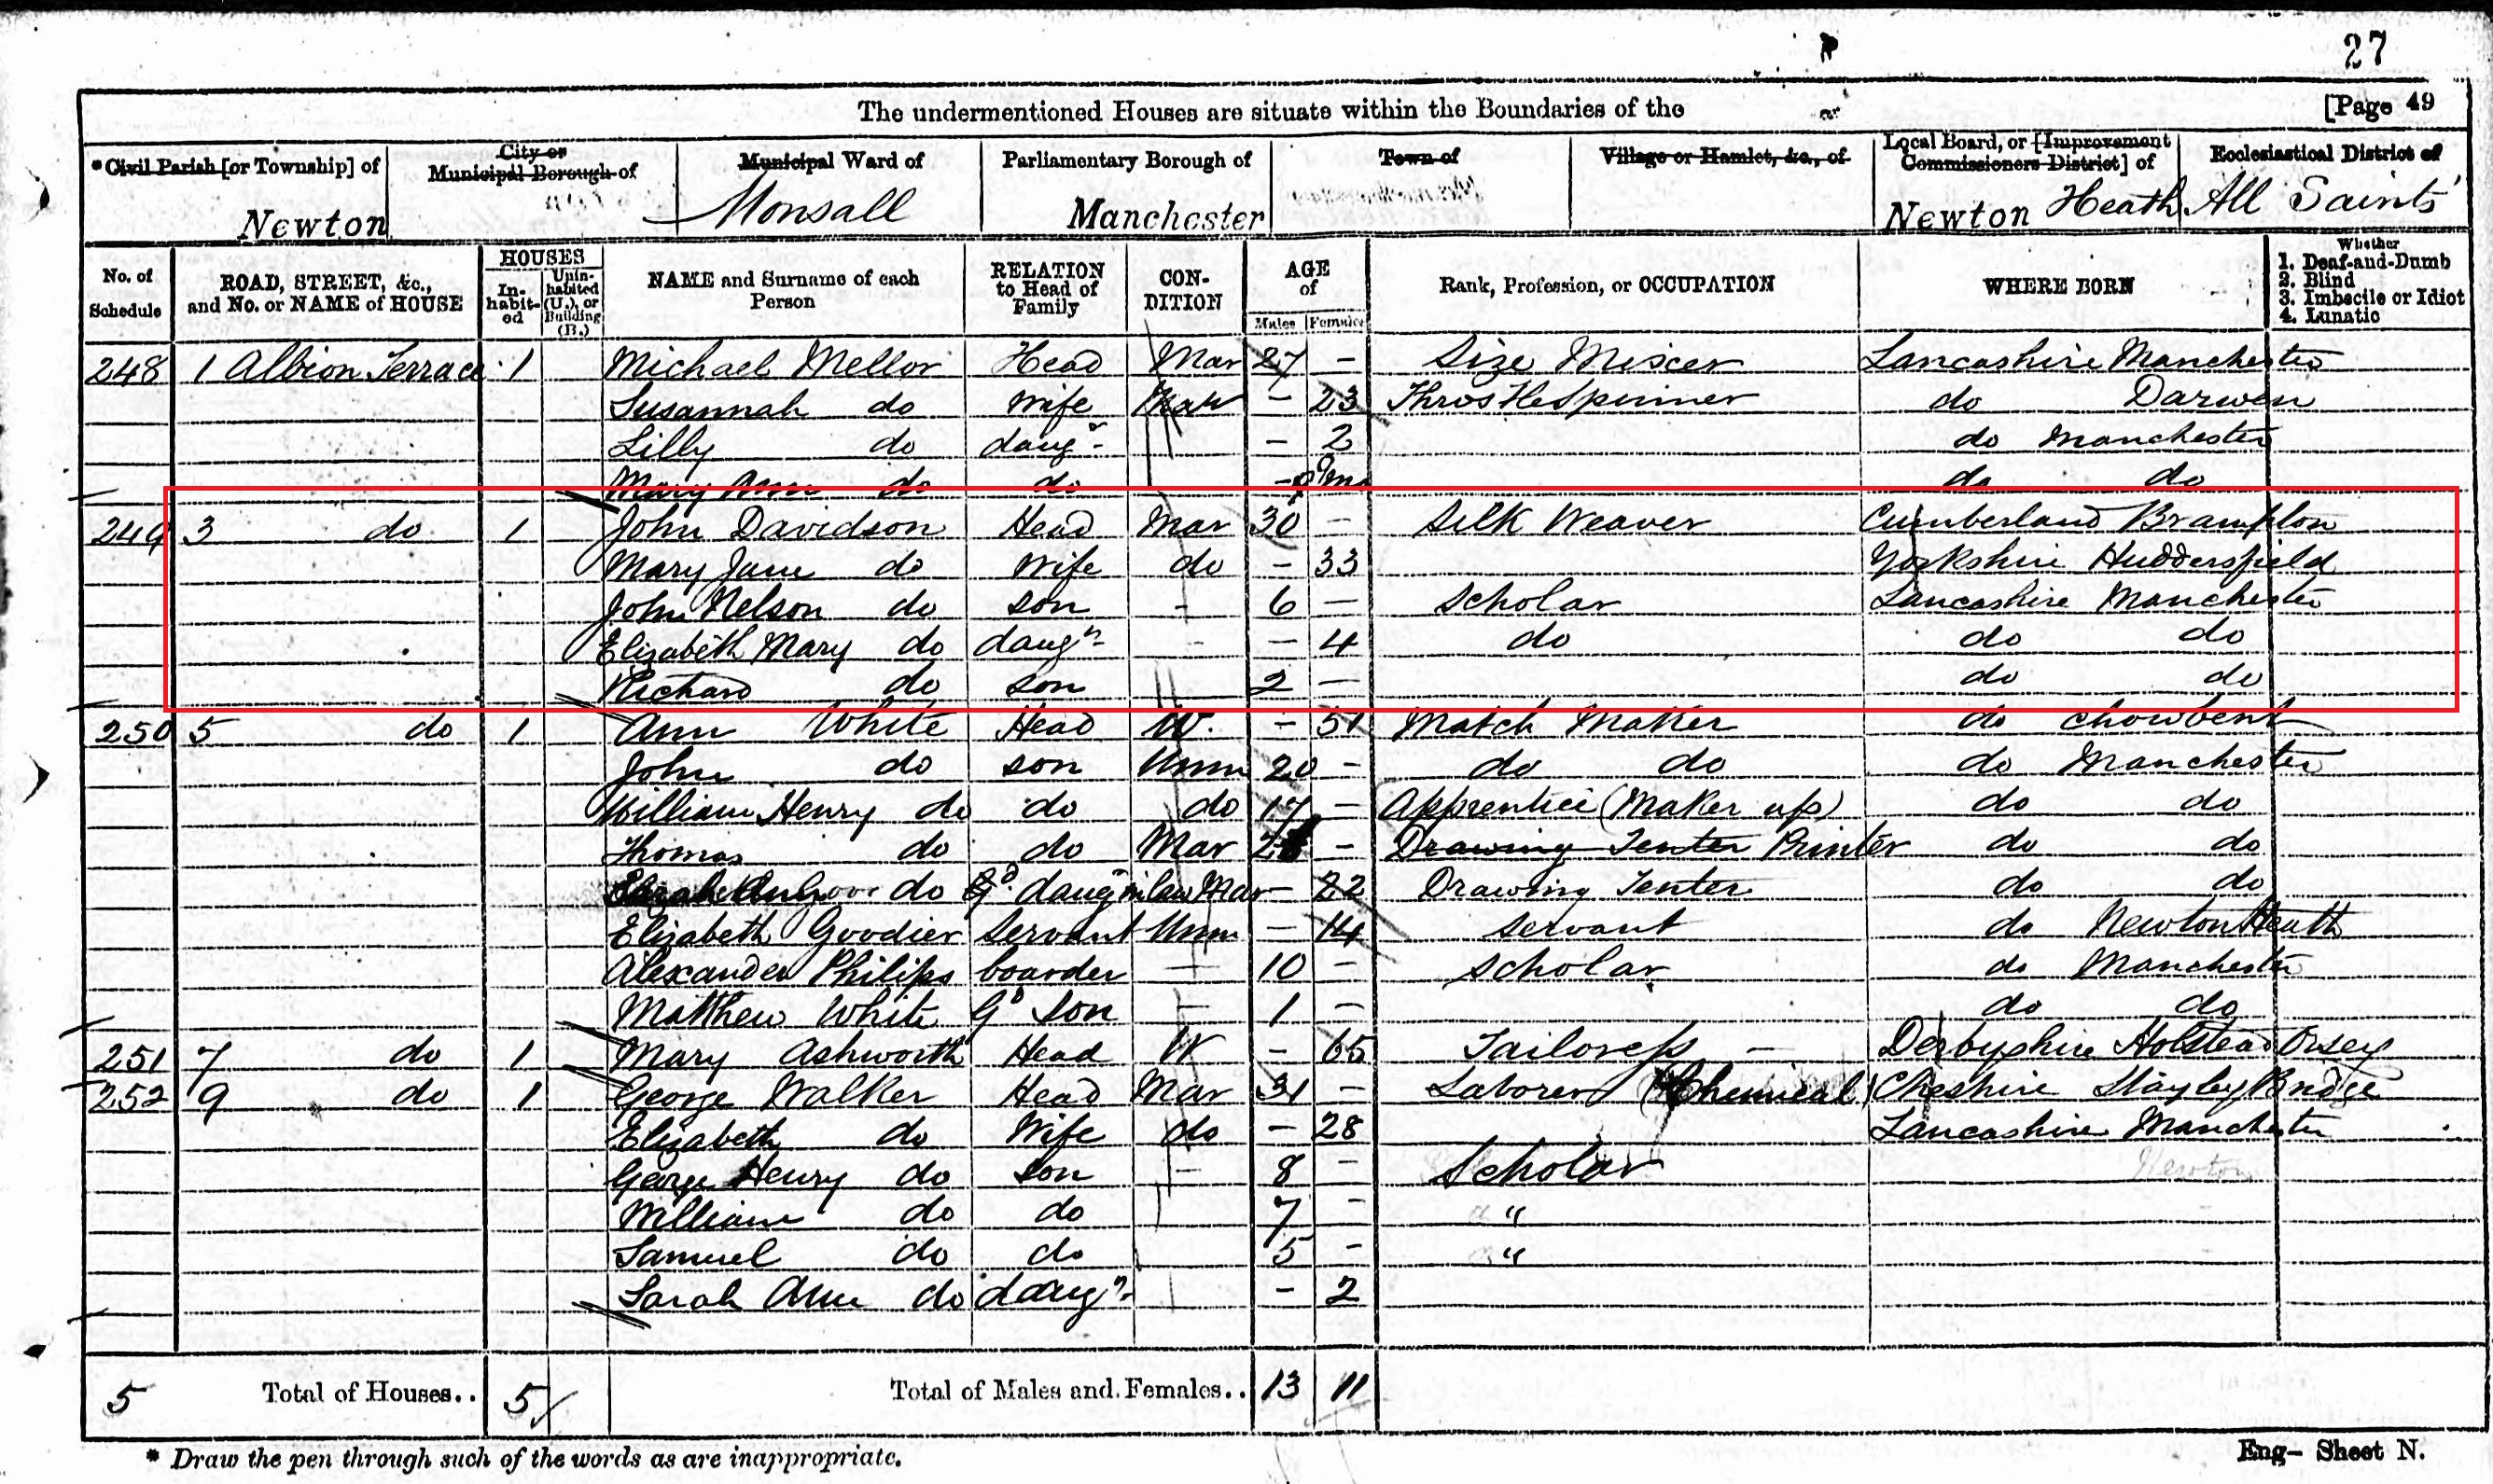 27
The undermentioned Houses are situate within the Boundaries of the
[Page 49
*Civil Parish [or Township] of Newton
City or Municipal Borough of
Municipal Ward of Monsall
Parliamentary Borough of Manchester
Town of
Village or Hamlet, &c., of
Local Board, or [Improvement Commissioners District] of Newton Heath
Ecclesiastical District of All Saints'
No. of Schedule
ROAD, STREET, &c., and No. or NAME of HOUSE
HOUSES
In-habit-ed
Unin-habited (U.), or Building (B.)
NAME and Surname of each Person
RELATION to Head of Family
CON-DITION
AGE of
Males Females
Rank, Profession, or OCCUPATION
WHERE BORN
Whether
1. Deaf-and-Dumb
2. Blind
3. Imbecile or Idiot
4. Lunatic
248 1 Albion Terrace 1 Michael Mellor Head Mar 27 – Size Mixer Lancashire Manchester
Susannah do Wife Mar – 23 Throstle Spinner do Darwen
Lilly do daugr – 2 do Manchester
Mary Ann do do – mo do do
249 3 do 1 John Davidson Head Mar 30 – Silk Weaver Cumberland Brampton
Mary Jane do Wife do – 33 Yorkshire Huddersfield
John Nelson do son - 6 – Scholar Lancashire Manchester
Elizabeth Mary do daugr - – 4 do do do
Richard do son 2 – do do
250 5 do 1 Ann White Head W. – 51 Match Maker do Chowbent
John do son Unm 20 – do do do Manchester
William Henry do do do 17 – Apprentice (Maker up) do do
Thomas do do Mar – Drawing Tenter Printer do do
do daug in law Mar – 22 Drawing Tenter do do
Elizabeth Goodier Servant Unm – 14 Servant do Newton Heath
Alexander Philips boarder — 10 – Scholar do Manchester
Matthew White Gd Son – 1 – do do
251 7 do 1 Mary Ashworth Head W – 65 Tailoress – Derbyshire
252 9 do 1 George Walker Head Mar 31 – Laborer (Chemical) Cheshire Stayley Bridge
Elizabeth do Wife do – 28 Lancashire Manchester
George Henry do son – 8 – Scholar Newton
William do do 7 – "
Samuel do do 5 – "
Sarah Ann do daugr – 2
5 Total of Houses.. 5 Total of Males and Females.. 13 11
* Draw the pen through such of the words as are inappropriate.
Eng– Sheet N.